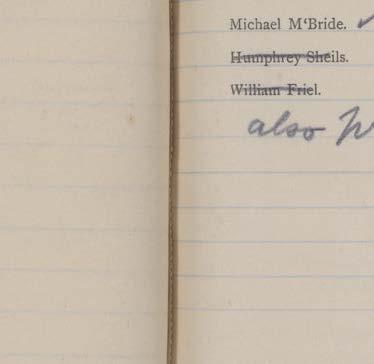 Michael M‘Bride.
Humphrey Sheils.
William Friel.
also